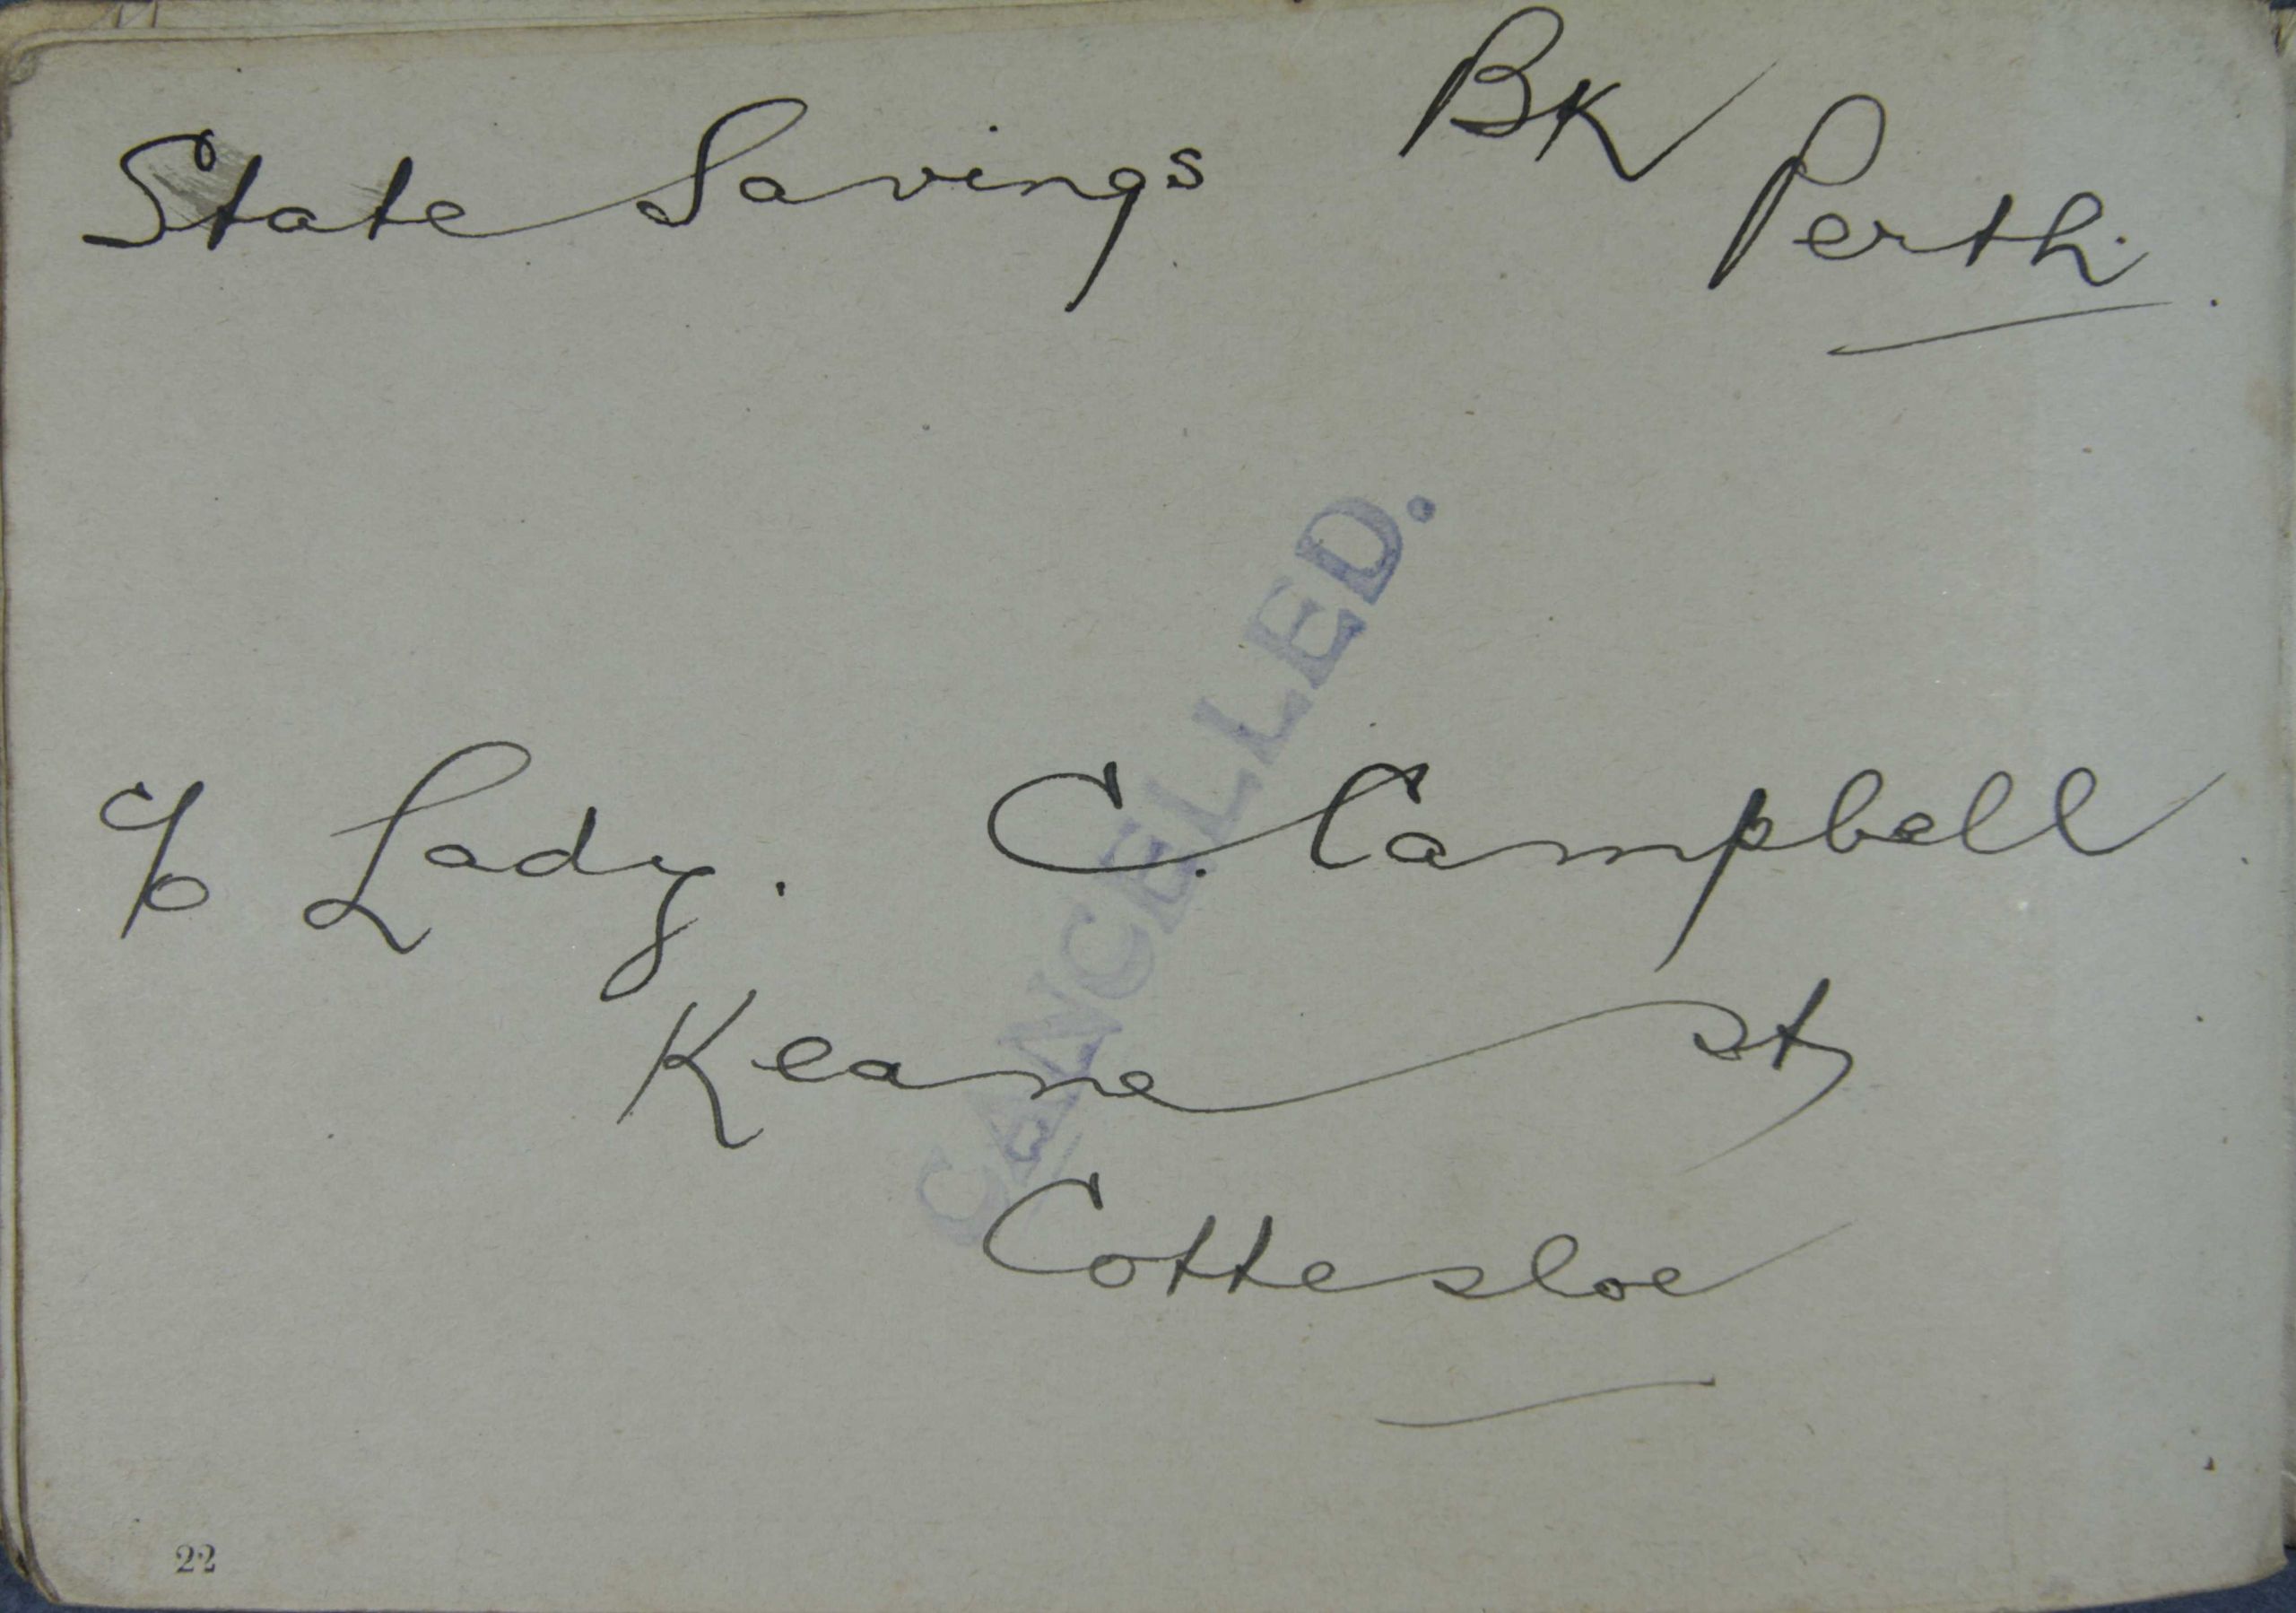 State Savings BK Perth.
CANCELLED.
c/o Lady. C. Campbell
Keane st
Cottesloe
22